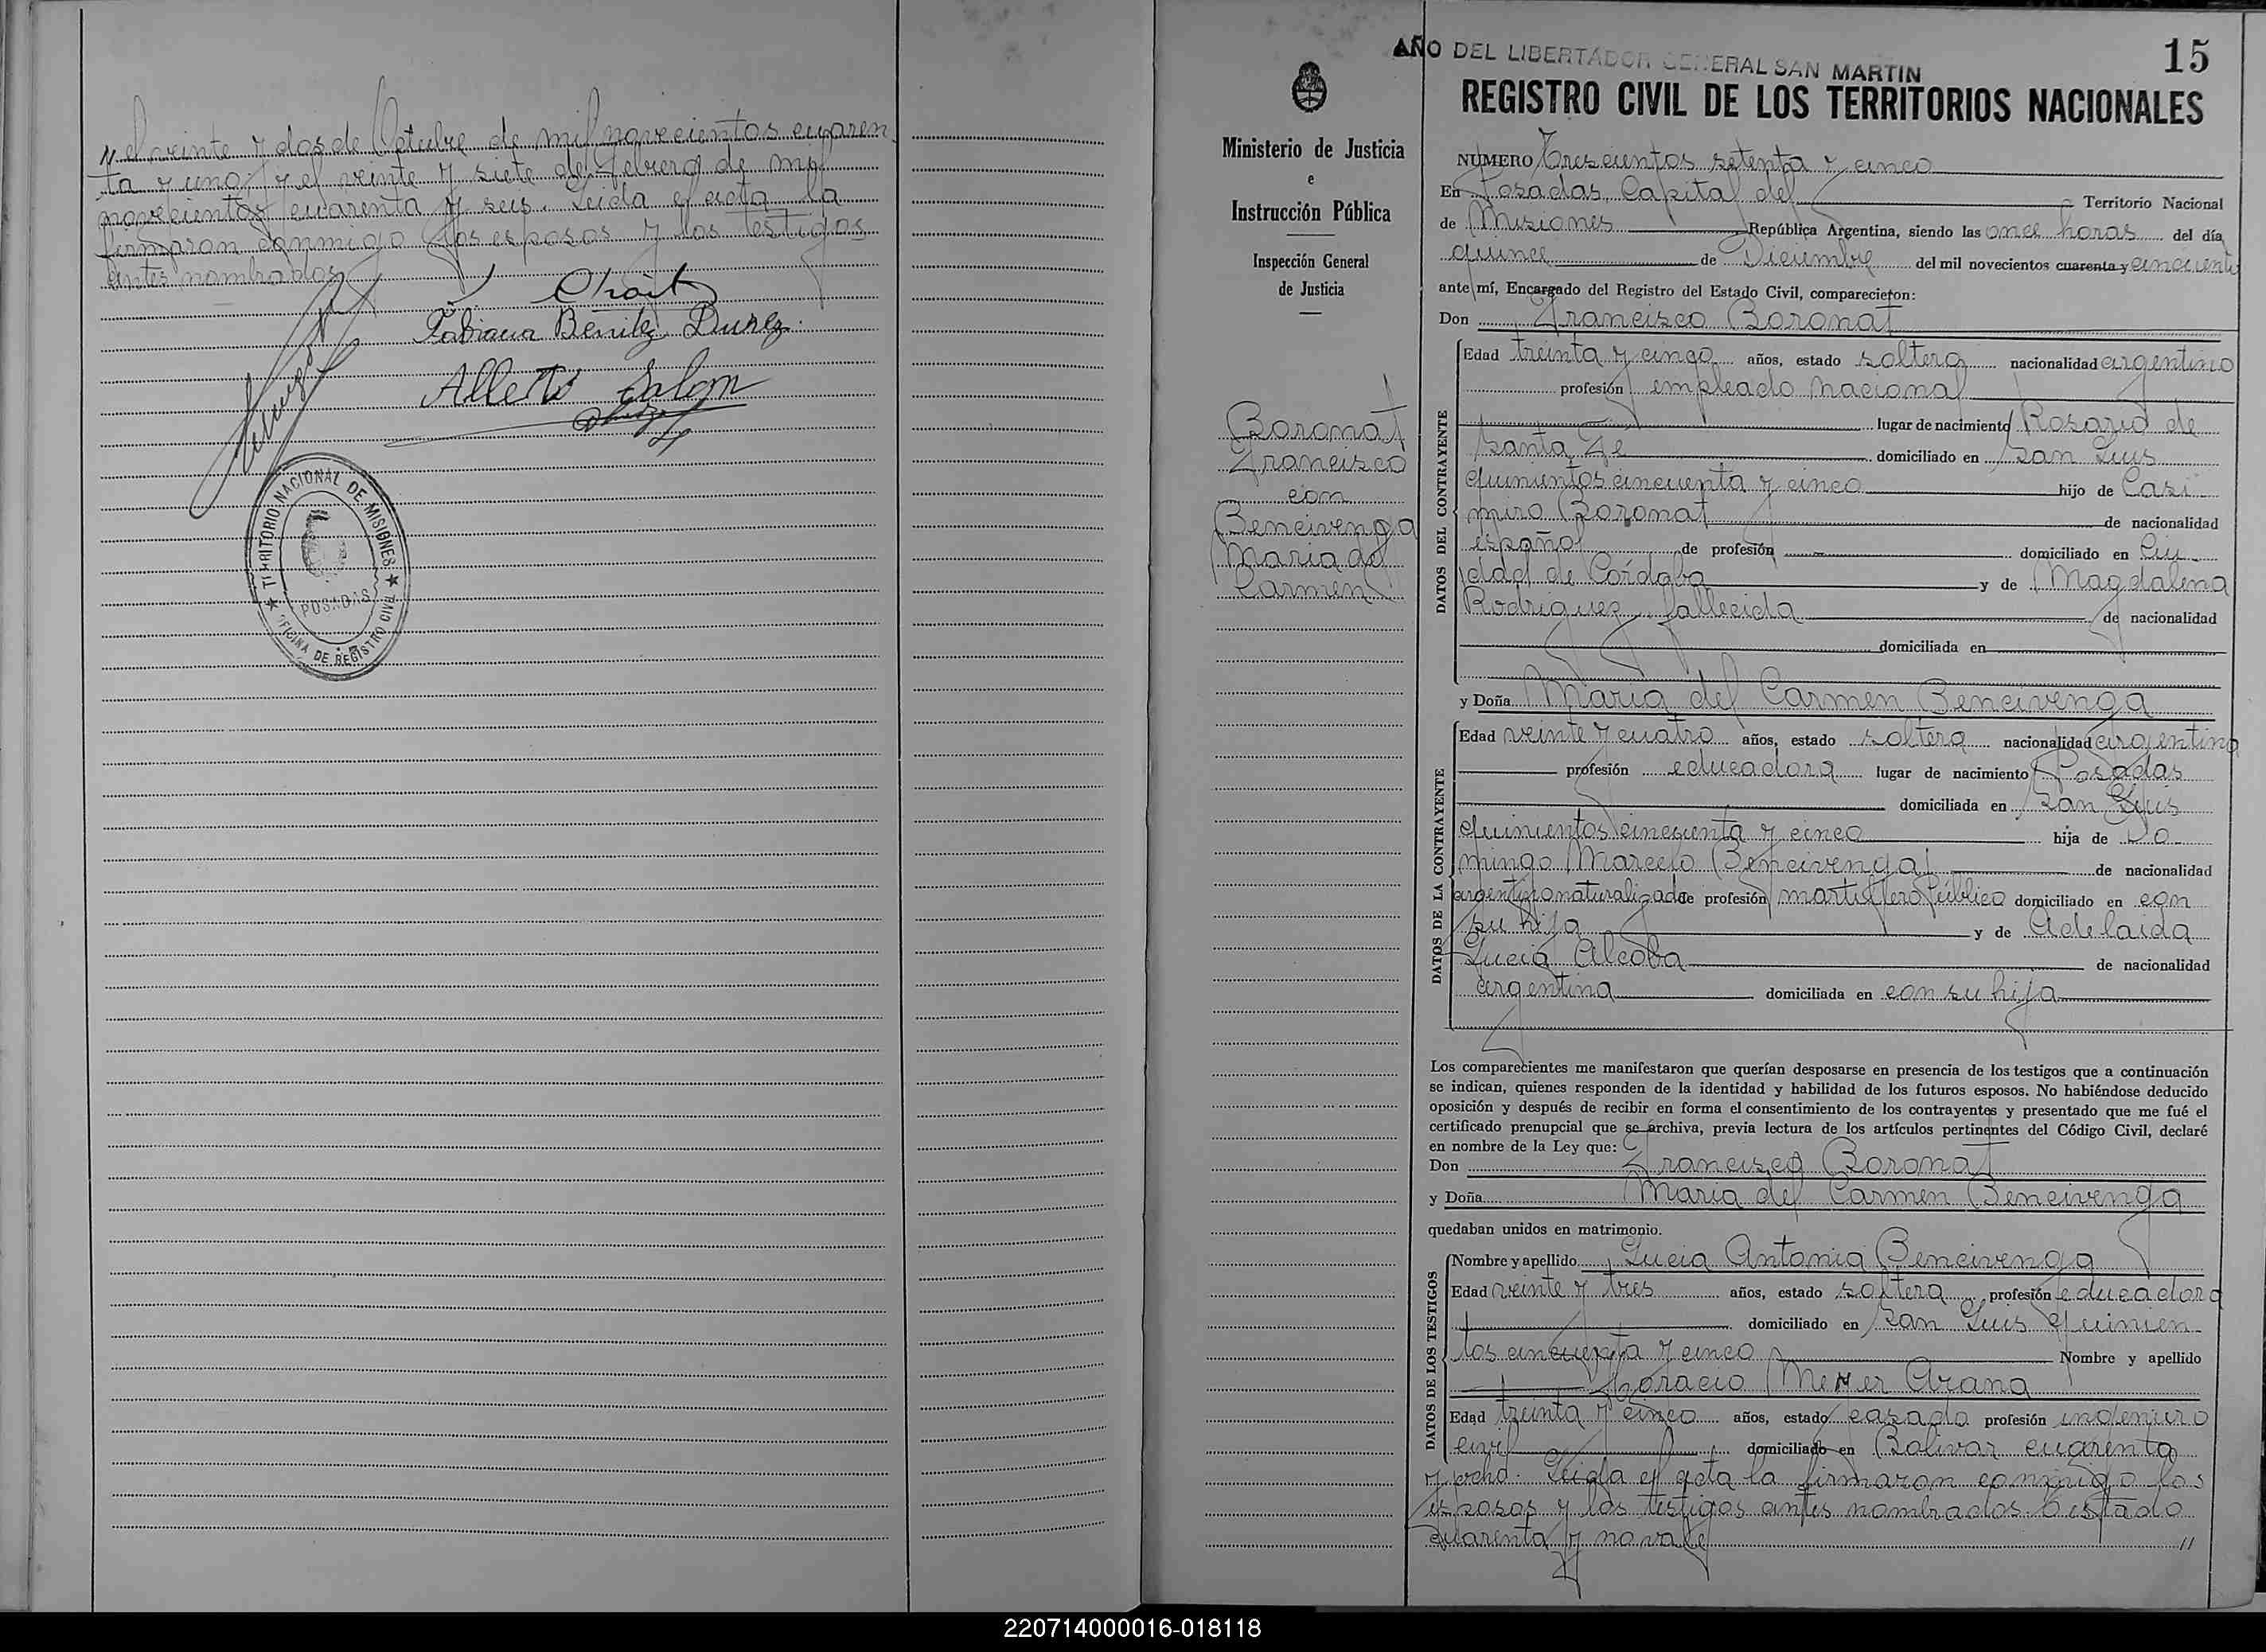 y el veinte y dos de Octubre de mil novecientos cuaren
ta y uno y el veinte y siete de Febrero de mil
novecientos cuarenta y seis. Leida el acta la
firmaron conmigo los esposos y los testigos
antes nombrados
Fabiana Benitez Dunez.
Alberto Salom
TERRITORIO NACIONAL DE MISIONES
POSADAS
OFICINA DE REGISTRO CIVIL
AÑO DEL LIBERTADOR GENERAL SAN MARTIN
15
REGISTRO CIVIL DE LOS TERRITORIOS NACIONALES
Ministerio de Justicia
e
Instrucción Pública
Inspección General
de Justicia
Boronat
Francisco
con
Bencivenga
Maria del
Carmen
NÚMERO Trescientos setenta y cinco
En Posadas, Capital del Territorio Nacional
de Misiones República Argentina, siendo las once horas del día
quince de Diciembre del mil novecientos cuarenta y cincuenta
ante mí, Encargado del Registro del Estado Civil, comparecieron:
Don Francisco Boronat
DATOS DEL CONTRAYENTE
Edad treinta y cinco años, estado soltero nacionalidad argentino
profesión empleado nacional
lugar de nacimiento Rosario de
Santa Fe domiciliado en San Luis
quinientos cincuenta y cinco hijo de Casi
miro Boronat de nacionalidad
español de profesión domiciliado en Ciu
dad de Córdoba y de Magdalena
Rodriguez, fallecida de nacionalidad
domiciliada en
y Doña Maria del Carmen Bencivenga
DATOS DE LA CONTRAYENTE
Edad veinte y cuatro años, estado soltera nacionalidad argentina
profesión educadora lugar de nacimiento Posadas
domiciliada en San Luis
quinientos cincuenta y cinco hija de Do
mingo Marcelo Bencivenga de nacionalidad
argentino naturalizado de profesión martillero público domiciliado en con
su hija y de Adelaida
Lucia Alcoba de nacionalidad
argentina domiciliada en con su hija
Los comparecientes me manifestaron que querían desposarse en presencia de los testigos que a continuación
se indican, quienes responden de la identidad y habilidad de los futuros esposos. No habiéndose deducido
oposición y después de recibir en forma el consentimiento de los contrayentes y presentado que me fué el
certificado prenupcial que se archiva, previa lectura de los artículos pertinentes del Código Civil, declaré
en nombre de la Ley que:
Don Francisco Boronat
y Doña Maria del Carmen Bencivenga
quedaban unidos en matrimonio.
DATOS DE LOS TESTIGOS
Nombre y apellido Lucia Antonia Bencivenga
Edad veinte y tres años, estado soltera profesión educadora
domiciliado en San Luis quinien
tos cincuenta y cinco Nombre y apellido
Horacio Meyer Arana
Edad treinta y cinco años, estado casado profesión ingeniero
civil domiciliado en Bolivar cuarenta
y ocho. Leida el acta la firmaron conmigo los
esposos y los testigos antes nombrados. Testado
cuarenta y no vale //
220714000016-018118